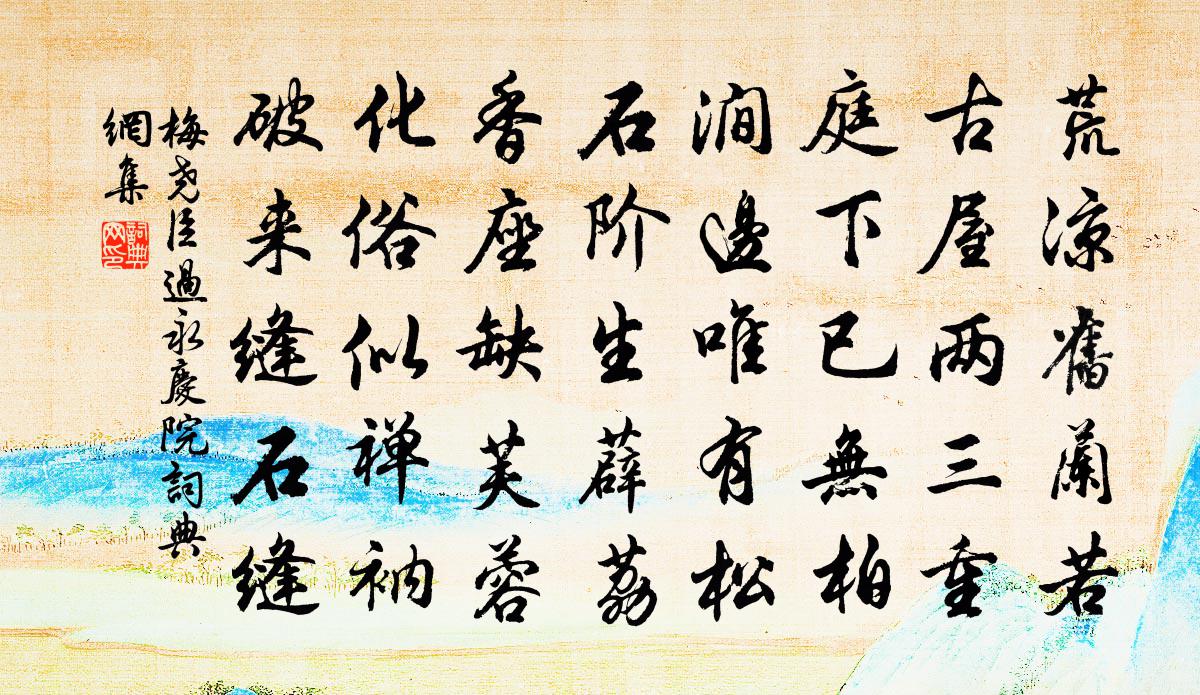 荒凉舊蘭若
古屋两三重
庭下已無柏
澗邊唯有松
石阶生薜荔
香座缺芙蓉
化俗似禅衲
破来缝石缝
梅尧臣過永慶院詞典
網集
詞典
网印